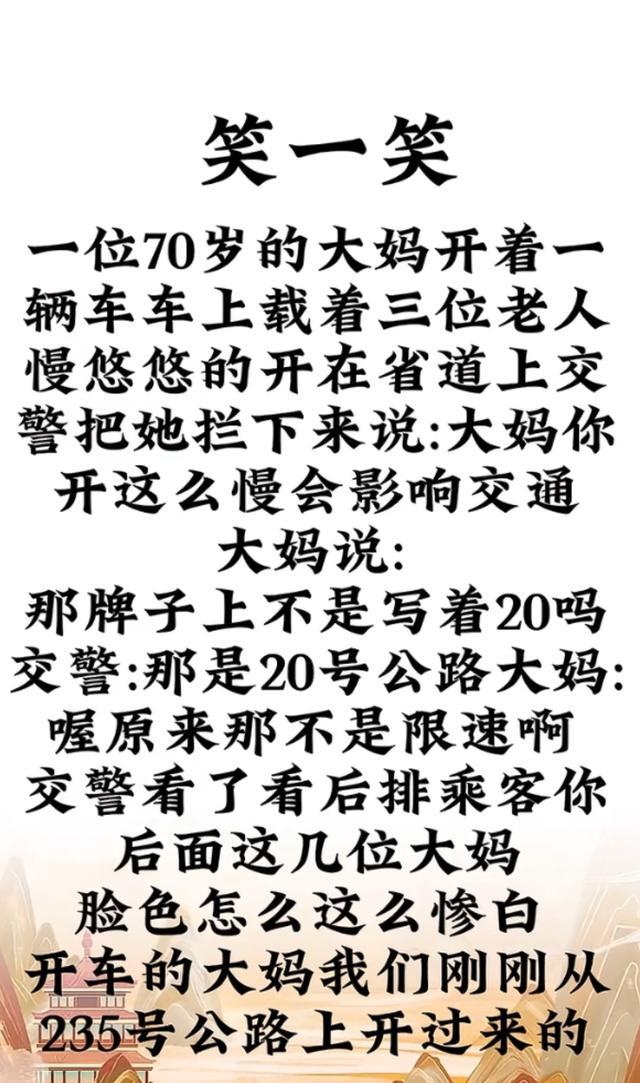 笑一笑
一位70岁的大妈开着一
辆车车上载着三位老人
慢悠悠的开在省道上交
警把她拦下来说:大妈你
开这么慢会影响交通
大妈说:
那牌子上不是写着20吗
交警:那是20号公路大妈:
喔原来那不是限速啊
交警看了看后排乘客你
后面这几位大妈
脸色怎么这么惨白
开车的大妈我们刚刚从
235号公路上开过来的